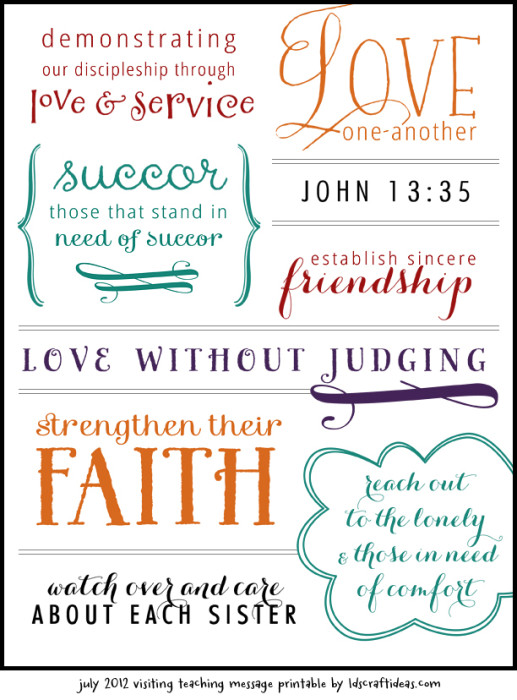 demonstrating
our discipleship through
love & service
LOVE
one-another
succor
those that stand in
need of succor
JOHN 13:35
establish sincere
friendship
LOVE WITHOUT JUDGING
strengthen their
FAITH
reach out
to the lonely
& those in need
of comfort
watch over and care
ABOUT EACH SISTER
july 2012 visiting teaching message printable by ldscraftideas.com